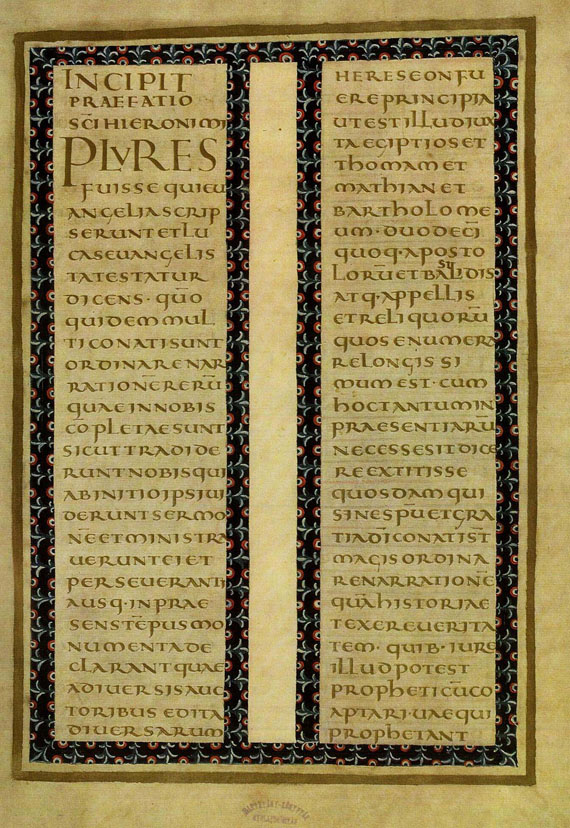 INCIPIT
PRAEFATIO
SC̄I HIERONIMI
PLURES
FUISSE QUI EU
ANGELIA SCRIP
SERUNT ET LU
CAS EUANGELIS
TA TESTATUR
DICENS · QUŌ
QUIDEM MUL
TI CONATI SUNT
ORDINARE NAR
RATIONĒ RERŪ
QUAE IN NOBIS
CŌPLETAE SUNT
SICUT TRADIDE
RUNT NOBIS QUI
AB INITIO IPSI UI
DERUNT SERMO
NĒ ET MINISTRA
UERUNT EI ET
PERSEUERANTI
A USQ · IN PRAE
SENS TĒPUS MO
NUMENTA DE
CLARANT QUAE
A DIUERSIS AUC
TORIBUS EDITA
DIUERSARUM
HERESEON FU
ERE PRINCIPIA
UT EST ILLUD IUX
TA EGIPTIOS ET
THOMAM ET
MATHIAN ET
BARTHOLOME
UM · DUODECĪ
QUOQ · APOSTO
LORŪ ET BASILIDIS
ATQ · APPELLIS
ET RELIQUORŪ
QUOS ENUMERA
RE LONGISSI
MUM EST · CUM
HOC TANTUM IN
PRAESENTIARŪ
NECESSE SIT DICE
RE EXTITISSE
QUOSDAM QUI
SINE SPŪ ET GRA
TIA DĪ CONATI S̄T
MAGIS ORDINA
RE NARRATIONĒ
QUĀ HISTORIAE
TEXERE UERITA
TEM · QUIB · IURE
ILLUD POTEST
PROPHETICŪ CO
APTARI · UAE QUI
PROPHETANT